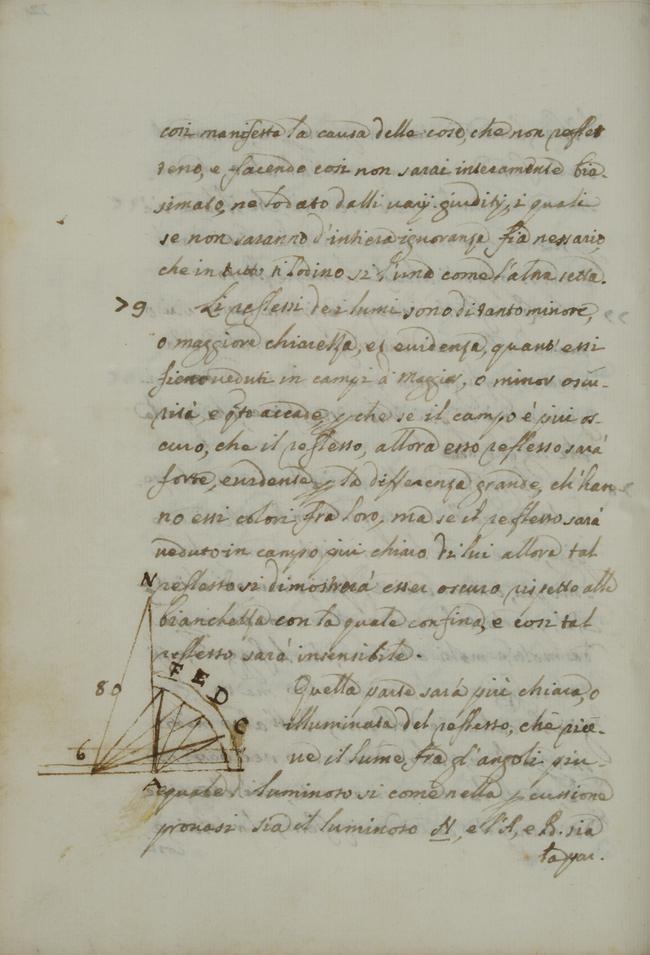 così manifesta la causa delle cose, che non reflet
teno, e facendo così non sarai interamente bia-
simato, ne lodato dalli varij giuditij, i quali
se non saranno d'intiera ignoranza fia nessario,
che in tutto ti lodino si l'una come l'altra setta.
79 Li reflessi de i lumi sono di tanto minore,
o maggiore chiarezza, et evidenza, quant'essi
fieno veduti in campi di maggior, o minor oscu-
rità, e qto accade, p che se il campo è più os-
curo, che il reflesso, allora esso reflesso sarà
forte, evidente p la differenza grande, ch'han
no essi colori fra loro, ma se il reflesso sarà
veduto in campo più chiaro di lui allora tal
N reflesso si dimostrerà esser oscuro rispetto alla
bianchezza con la quale confina, e così tal
reflesso sarà insensibile.
F E D C
80 Quella parte sarà più chiara, o
illuminata del reflesso, che rice-
6 ve il lume fra gl'angoli più
A
equali il luminoso si come nella pcussione
provasi sia il luminoso N, e l'A, e B. sia
la par.